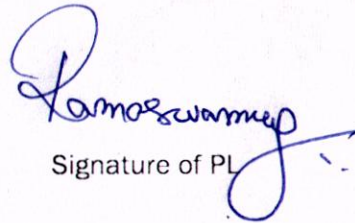 Ramaswamy
Signature of PL